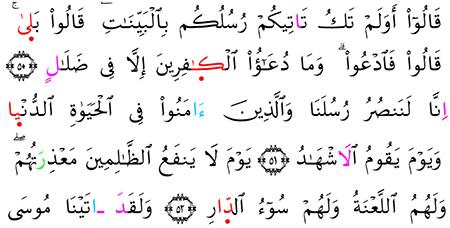 قَالُوٓا۟ أَوَلَمْ تَكُ تَاتِيكُمْ رُسُلُكُم بِٱلْبَيِّنَـٰتِ ۖ قَالُوا۟ بَلَىٰ ۚ
قَالُوا۟ فَٱدْعُوا۟ ۗ وَمَا دُعَـٰٓؤُا۟ ٱلْكَـٰفِرِينَ إِلَّا فِى ضَلَـٰلٍ ۝٥٠
اِنَّا لَنَنصُرُ رُسُلَنَا وَٱلَّذِينَ ءَامَنُوا۟ فِى ٱلْحَيَوٰةِ ٱلدُّنْيا
وَيَوْمَ يَقُومُ ٱلَاشْهَـٰدُ ۝٥١ يَوْمَ لَا يَنفَعُ ٱلظَّـٰلِمِينَ مَعْذِرَتُهُمْ ۖ
وَلَهُمُ ٱللَّعْنَةُ وَلَهُمْ سُوٓءُ ٱلدَّارِ ۝٥٢ وَلَقَدَ ـاتَيْنَا مُوسَى